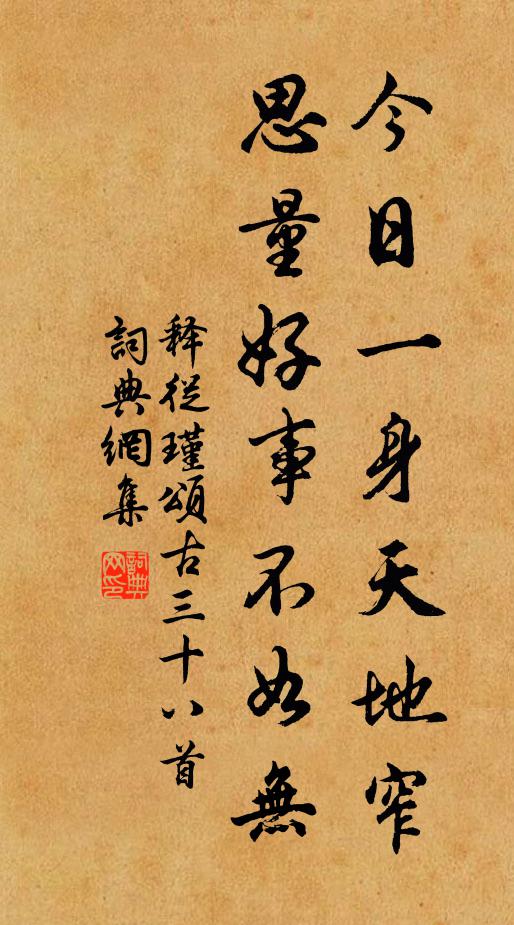 今日一身天地窄
思量好事不如無
释從瑾頌古三十八首
詞典網集
詞典网印